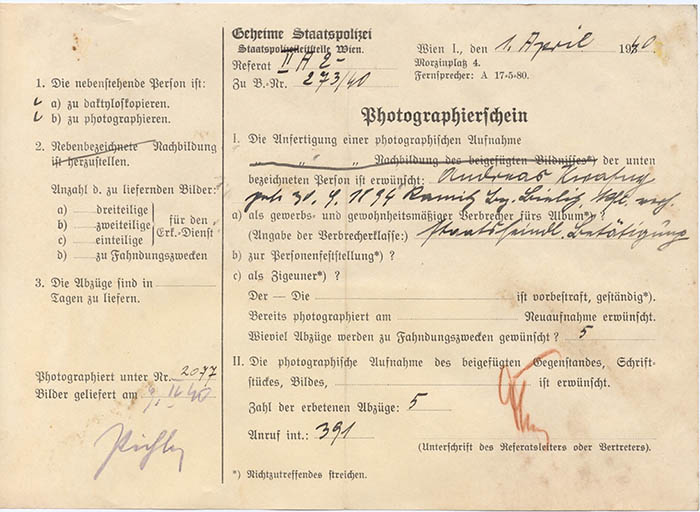 1. Die nebenstehende Person ist:
a) zu daktyloskopieren.
b) zu photographieren.
2. Nebenbezeichnete Nachbildung
ist herzustellen.
Anzahl d. zu liefernden Bilder:
a) dreiteilige
b) zweiteilige
c) einteilige
für den
Erk.-Dienst
d) zu Fahndungszwecken
3. Die Abzüge sind in
Tagen zu liefern.
Photographiert unter Nr. 2077
Bilder geliefert am 9. IV 40
Pichler
Geheime Staatspolizei
Staatspolizeileitstelle Wien.
Referat II A 2-
Zu B.-Nr. 273/40
Wien I., den 1. April 1940
Morzinplatz 4.
Fernsprecher: A 17-5-80.
Photographierschein
I. Die Anfertigung einer photographischen Aufnahme
„ „ „ Nachbildung des beigefügten Bildnisses*) der unten
bezeichneten Person ist erwünscht: Andreas
geb. 30. 9. 1894
a) als gewerbs- und gewohnheitsmäßiger Verbrecher fürs Album*) ?
(Angabe der Verbrecherklasse:) staatsfeindl. Betätigung
b) zur Personenfeststellung*) ?
c) als Zigeuner*) ?
Der — Die ist vorbestraft, geständig*).
Bereits photographiert am Neuaufnahme erwünscht.
Wieviel Abzüge werden zu Fahndungszwecken gewünscht ? 5
II. Die photographische Aufnahme des beigefügten Gegenstandes, Schrift-
stückes, Bildes, ist erwünscht.
Zahl der erbetenen Abzüge: 5
Anruf int.: 391
(Unterschrift des Referatsleiters oder Vertreters).
*) Nichtzutreffendes streichen.